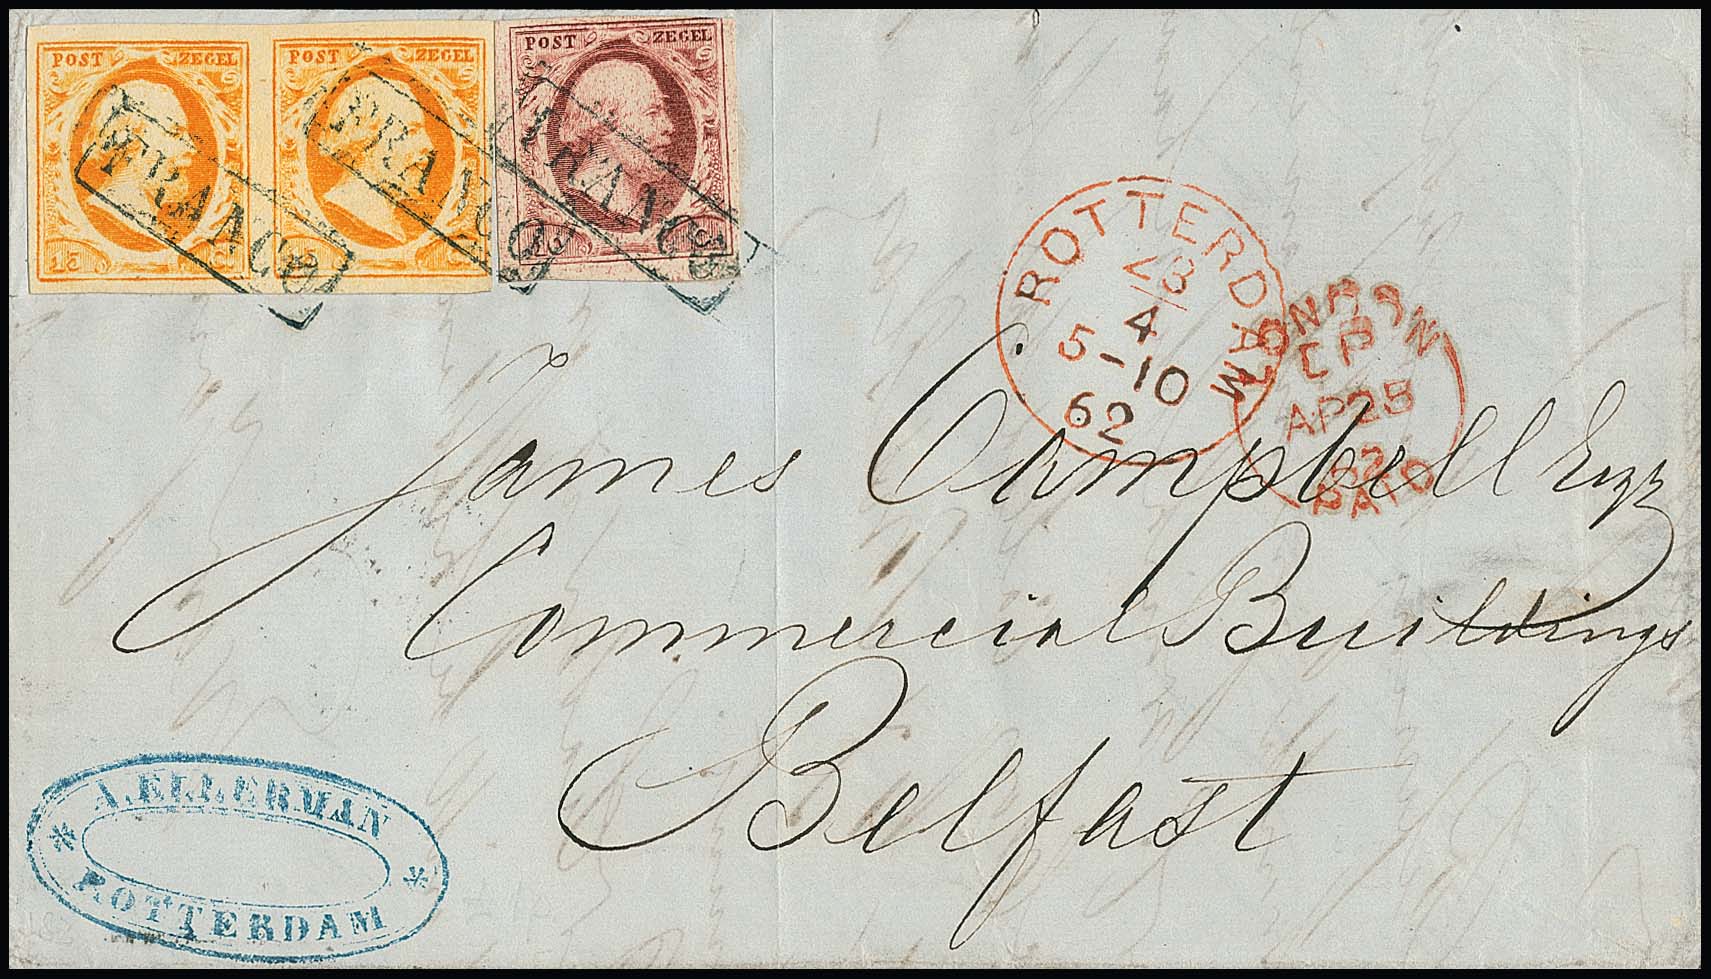 POST ZEGEL
15 C
POST ZEGEL
C
POST ZEGEL
FRANCO
FRANCO
FRANCO
ROTTERDAM
23
4
5-10
62
LONDON
AP 25
62
PAID
James Campbell Esqr
Commercial Buildings
Belfast
A. ELLERMAN
* *
ROTTERDAM